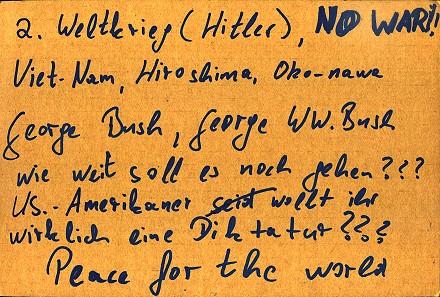 2. Weltkrieg (Hitler), NO WAR!!
Viet-Nam, Hiroshima, Oko-nawa
George Bush, George WW. Bush
wie weit soll es noch gehen???
US.-Amerikaner seit wollt ihr
wirklich eine Diktatur???
Peace for the world